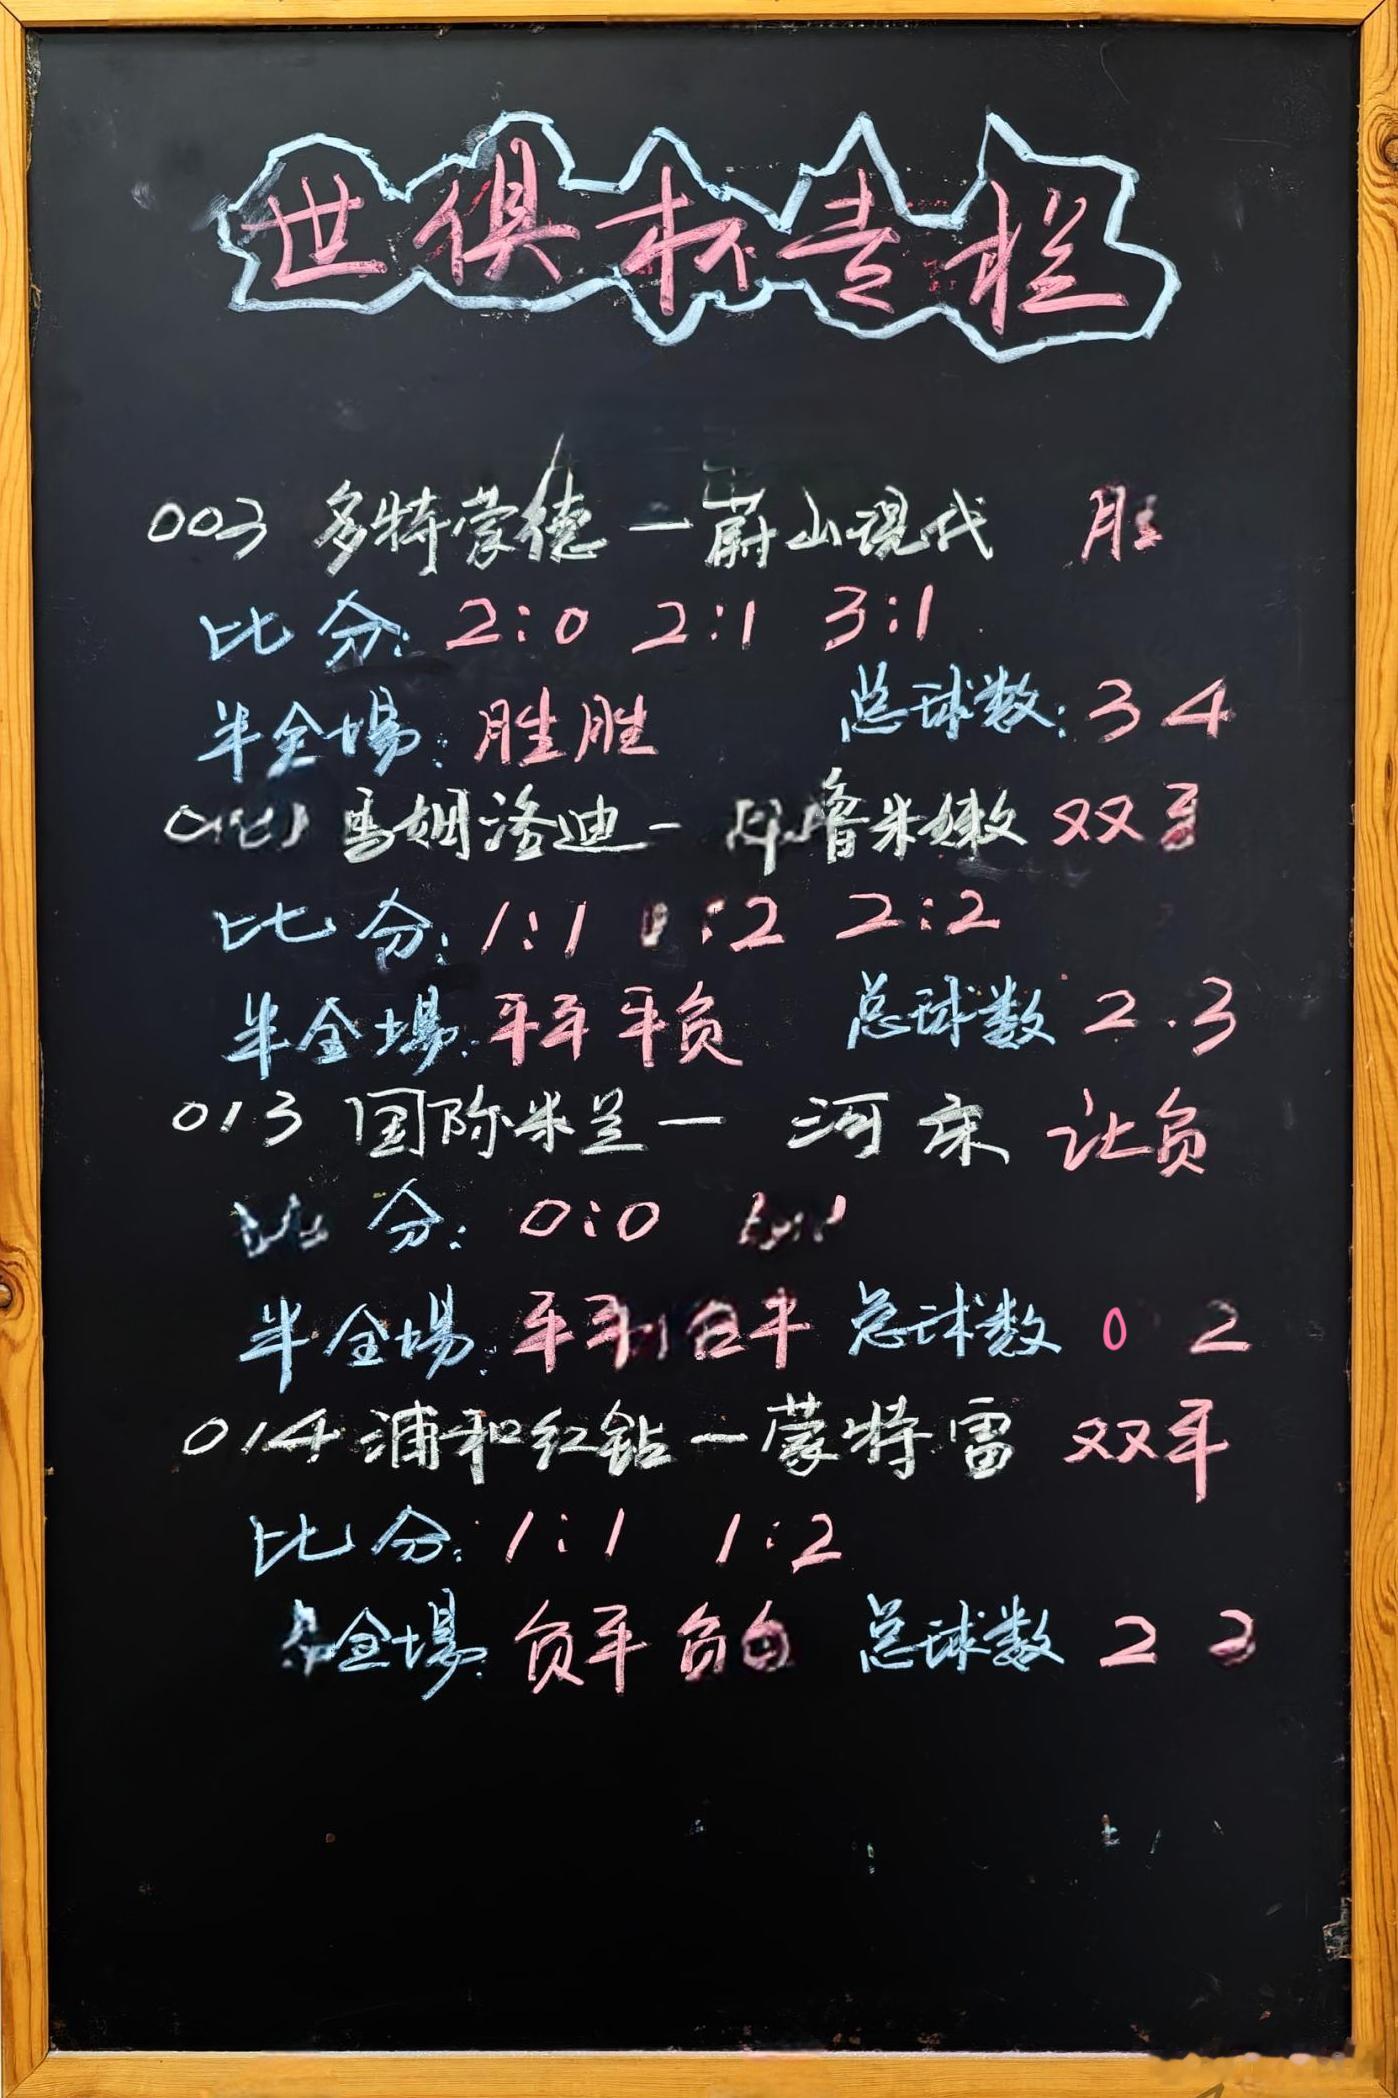 世俱杯专栏
003 多特蒙德 — 蔚山现代 胜
比分: 2:0 2:1 3:1
半全場: 胜胜 总球数: 3 4
马姆洛迪 - 鲁米嫩 双平
比分: 1:1 :2 2:2
半全場: 平平 平负 总球数 2.3
013 国际米兰 — 河床 让负
分: 0:0
半全場: 平平 平 总球数 0 2
014 浦和红钻 — 蒙特雷 双平
比分: 1:1 1:2
全場: 负平 负 总球数 2